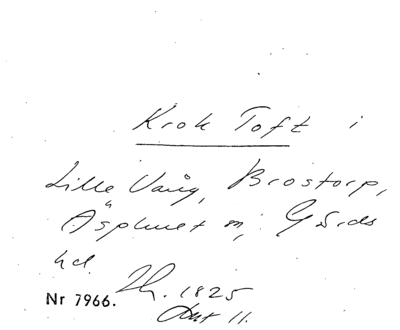 Krok Toft i
Lille Vång, Brostorp,
Äsphult sn, Gärds
hd.
Nr 7966. 1825
Akt 11.